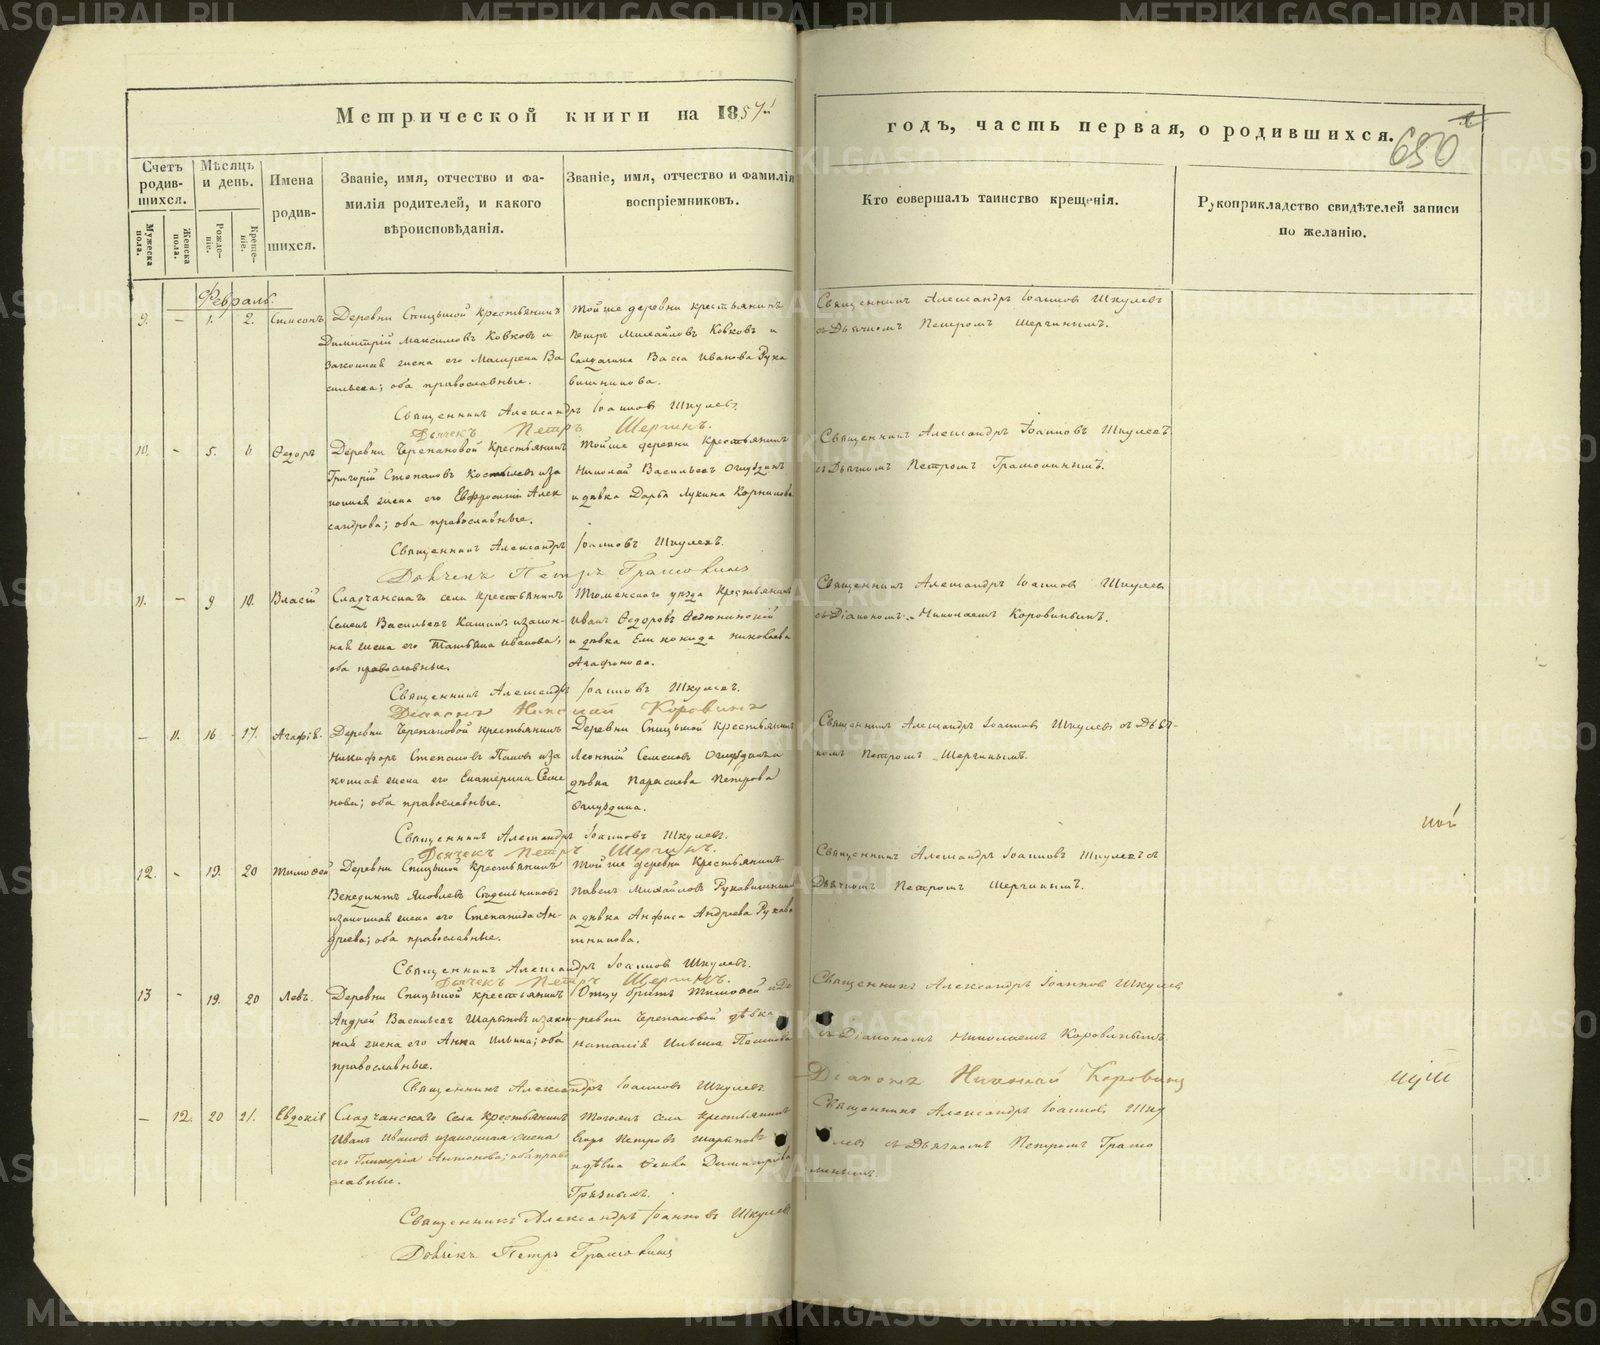 METRIKI.GASO-URAL.RU
Метрической книги на 1857й
годъ, часть первая, о родившихся.
650
Счетъ родив-шихся.
Мѣсяцъ и день.
Имена родив-шихся.
Званіе, имя, отчество и фа-
милія родителей, и какого
вѣроисповѣданія.
Званіе, имя, отчество и фамилія
воспріемниковъ.
Кто совершалъ таинство крещенія.
Рукоприкладство свидѣтелей записи
по желанію.
Мужеска пола.
Женска пола.
Рожде-ніе.
Креще-ніе.
Февраль.
9. - 1. 2. Симеонъ.
Деревни Спицыной крестьянинъ
Димитрій Максимовъ Ковковъ и
законная жена его Маѳрена Ва
сильева; оба православные.
Тойже деревни крестьянинъ
Петръ Михайловъ Ковковъ и
Солдатка Васса Иванова Рука
вишникова.
Священникъ Александръ Іоанновъ Шкулевъ
съ Дьячкомъ Петромъ Шергинымъ.
Священникъ Александръ Іоанновъ Шкулевъ.
Дьячекъ Петръ Шергинъ.
10. - 5. 6 Ѳедоръ
Деревни Черепановой крестьянинъ
Григорій Степановъ Костылевъ и за
конная жена его Евфросинія Алек
сандрова; оба православные.
Тойже деревни крестьянинъ
Николай Васильевъ
и дѣвка Дарья Лукина Корнилова
Священникъ Александръ Іоанновъ Шкулевъ
съ Дьячкомъ Петромъ
Священникъ Александръ Іоанновъ Шкулевъ.
Дьячекъ Петръ
11. - 9 10. Власій
Сладчанскаго села крестьянинъ
Семенъ Васильевъ Кашинъ и закон-
ная жена его Татьяна Иванова;
оба православные.
Тюменскаго уѣзда крестьянинъ
Иванъ Ѳедоровъ
и дѣвка Николаева
Агафонова.
Священникъ Александръ Іоанновъ Шкулевъ
съ Діакономъ Николаемъ Коровинымъ.
Священникъ Александръ Іоанновъ Шкулевъ.
Діаконъ Николай Коровинъ
- 11. 16 17. Агафія.
Деревни Черепановой крестьянинъ
Никифоръ Степановъ Пановъ и за
конная жена его Екатерина Семе
нова; оба православные.
Деревни Спицыной крестьянинъ
Леонтій Семеновъ
дѣвка Параскева Петрова
Священникъ Александръ Іоанновъ Шкулевъ съ Дьяч-
комъ Петромъ Шергинымъ.
Священникъ Александръ Іоанновъ Шкулевъ.
Дьячекъ Петръ Шергинъ.
12. - 19. 20 Тимоѳей
Деревни Спицыной крестьянинъ
Венедиктъ Яковлевъ Сидельниковъ
и законная жена его Степанида Ан-
дреева; оба православные.
Тойже деревни крестьянинъ
Павелъ Михайловъ Рукавишник
и дѣвка Анфиса Андреева Рукави
шникова.
Священникъ Александръ Іоанновъ Шкулевъ съ
Дьячкомъ Петромъ Шергинымъ.
Священникъ Александръ Іоанновъ Шкулевъ.
Дьячекъ Петръ Шергинъ.
13 - 19. 20 Левъ.
Деревни Спицыной крестьянинъ
Андрей Васильевъ Шарыповъ и закон-
ная жена его Анна Ильина; оба
православные.
Отцу братъ Тимоѳей и Де
ревни Черепановой дѣвка
Наталія Ильина
Священникъ Александръ Іоанновъ Шкулев
съ Діакономъ Николаемъ Коровинымъ
Священникъ Александръ Іоанновъ Шкулевъ
Діаконъ Николай Коровинъ
- 12. 20 21. Евдокія
Сладчанскаго Села крестьянинъ
Иванъ Ивановъ и законная жена
его Гликерія Антонова; оба право
славные.
Тогожъ села крестьянинъ
Егоръ Петровъ Шарыповъ
и дѣвка Ѳекла Димитріева
Грязныхъ.
Священникъ Александръ Іоанновъ Шку
левъ съ Дьячкомъ Петромъ
Священникъ Александръ Іоанновъ Шкулевъ
Дьячекъ Петръ